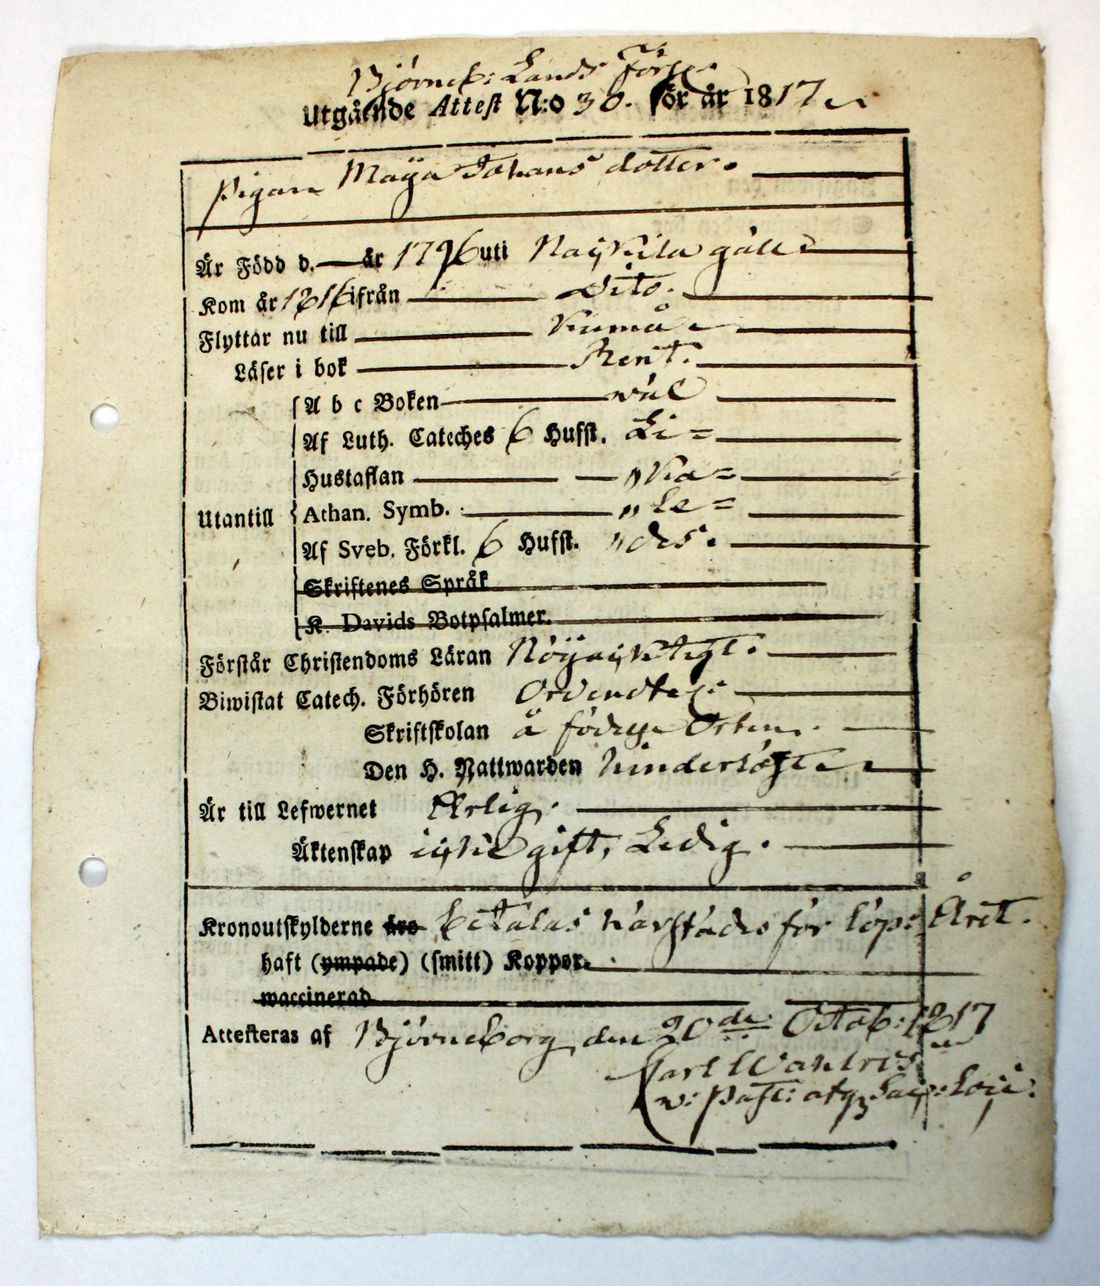 Björneb: Lands Förs:
Utgående Attest N:o 30. för år 1817
Pigan Maya Johans dotter.
Är Född d. — år 1796 uti Nackila gäll
Kom år 1816 ifrån — Dito.
Flyttar nu till — Kumå
Läser i bok — Rent.
A b c Boken — wäl
Af Luth. Cateches 6 Hufst. Li=
Hustaflan — „ka=
Utantill
Athan. Symb. — „Le=
Af Sveb. Förkl. 6 Hufst. „des.
Skriftenes Språk
K. Davids Botpsalmer.
Förstår Christendoms Läran Nöyacktigt.
Biwistat Catech. Förhören Ordentel:
Skriftskolan å födelse Orten.
Den H. Nattwarden
Är till Lefwernet Ärlig.
Äktenskap icke gift, Ledig.
Kronoutskylderne äro betalas härstädes för löp: Året.
haft (ympade) (smitt) Koppor.
waccinerad
Attesteras af Björneborg den 20de Octob: 1817
Carl
w: Past: